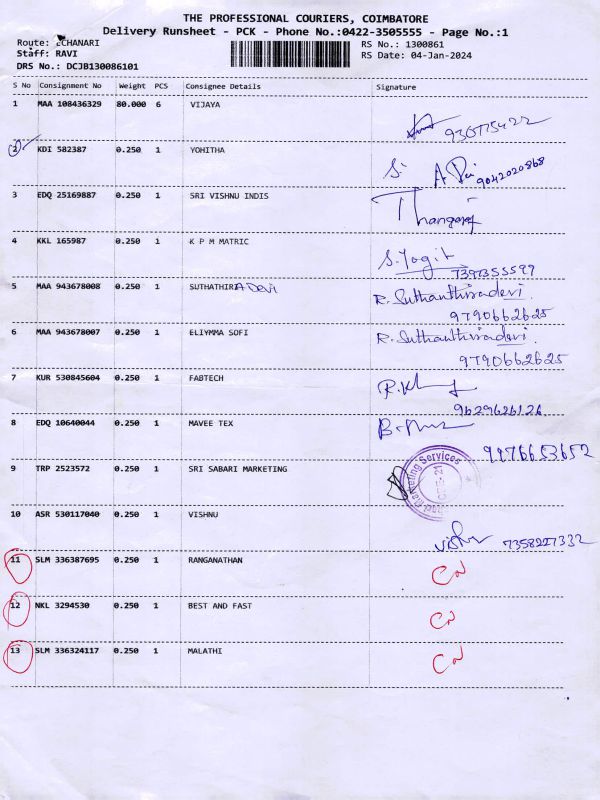 THE PROFESSIONAL COURIERS, COIMBATORE
Delivery Runsheet - PCK - Phone No.:0422-3505555 - Page No.:1
Route: ECHANARI RS No.: 1300861
Staff: RAVI RS Date: 04-Jan-2024
DRS No.: DCJB130086101
S No Consignment No Weight PCS Consignee Details Signature
1 MAA 108436329 80.000 6 VIJAYA
2 KDI 582387 0.250 1 YOHITHA
S. A. 9042020868
3 EDQ 25169887 0.250 1 SRI VISHNU INDIS
Thangaraj
4 KKL 165987 0.250 1 K P M MATRIC
S. Yogit
7397355599
5 MAA 943678008 0.250 1 SUTHATHIRA DEVI R. Suthanthiradevi.
9790662625
6 MAA 943678007 0.250 1 ELIYMMA SOFI R. Suthanthiradevi.
9790662625
7 KUR 530845604 0.250 1 FABTECH
9629626126
8 EDQ 10640044 0.250 1 MAVEE TEX
9976653652
9 TRP 2523572 0.250 1 SRI SABARI MARKETING
Marketing Services
10 ASR 530117040 0.250 1 VISHNU
7358227332
11 SLM 336387695 0.250 1 RANGANATHAN
12 NKL 3294530 0.250 1 BEST AND FAST
13 SLM 336324117 0.250 1 MALATHI